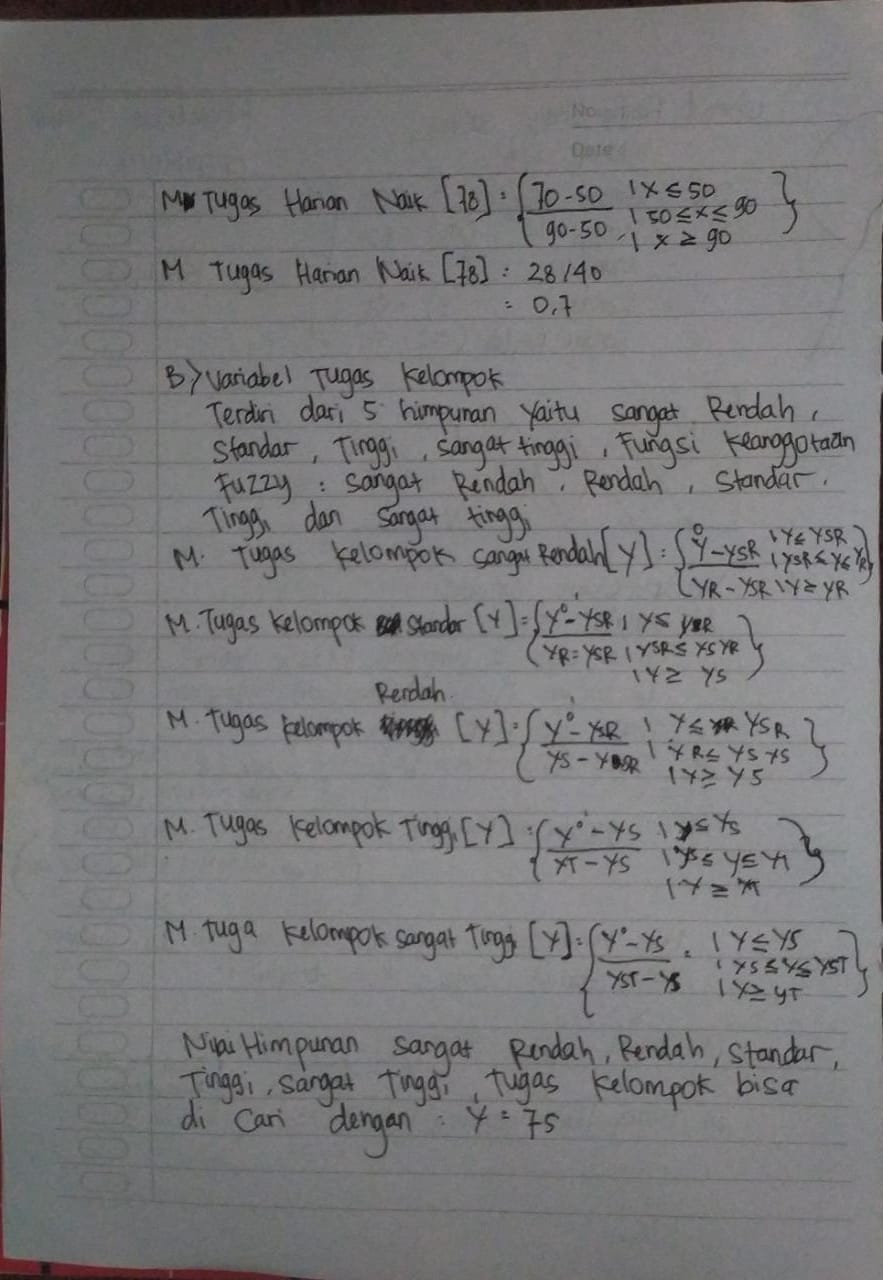 No
Date
M Tugas Harian Naik [78] : { 70-50 | x ≤ 50
90-50 | 50 ≤ x ≤ 90
| x ≥ 90 }
M Tugas Harian Naik [78] : 28/40
= 0,7
B) Variabel Tugas Kelompok
Terdiri dari 5 himpunan yaitu sangat Rendah,
Standar, Tinggi, sangat tinggi, Fungsi Keanggotaan
Fuzzy : Sangat Rendah, Rendah, Standar,
Tinggi dan Sangat tinggi
M. Tugas Kelompok sangat Rendah [Y] : { 0 | Y ≤ YSR
Y-YSR | YSR ≤ Y ≤ YR
YR-YSR | Y ≥ YR }
M. Tugas Kelompok Standar [Y] = { Y°-YSR | Y ≤ YSR
YR=YSR | YSR ≤ Y ≤ YR
| Y ≥ YS }
M. Tugas Kelompok Rendah [Y] : { Y°-YSR | Y ≤ YSR
YS-YSR | YR ≤ YS YS
| Y ≥ YS }
M. Tugas Kelompok Tinggi [Y] : { Y°-YS | Y ≤ YS
YT-YS | YS ≤ Y ≤ YT
| Y ≥ YT }
M. Tuga Kelompok sangat Tinggi [Y] : { Y°-YS | Y ≤ YS
YST-YS | YS ≤ Y ≤ YST
| Y ≥ YT }
Nilai Himpunan sangat Rendah, Rendah, Standar,
Tinggi, sangat Tinggi, Tugas Kelompok bisa
di Cari dengan : Y = 75